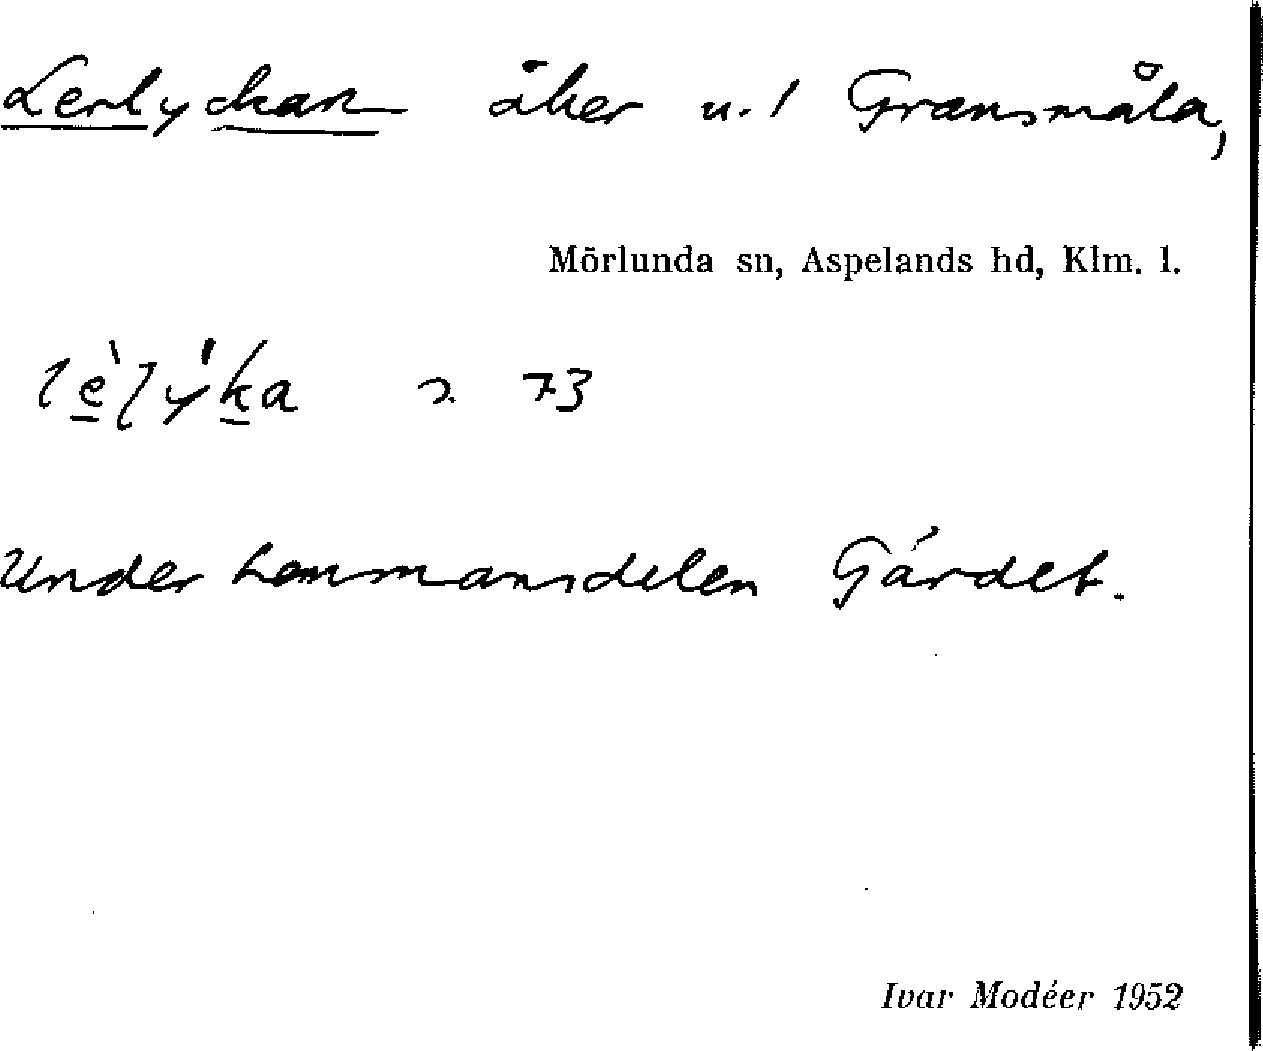 Lerlyckan åker u. 1 Gransmåla,
Mörlunda sn, Aspelands hd, Klm. l.
lè̠ly̍k̠a 2. 73
Under hemmansdelen Gärdet.
Ivar Modéer 1952